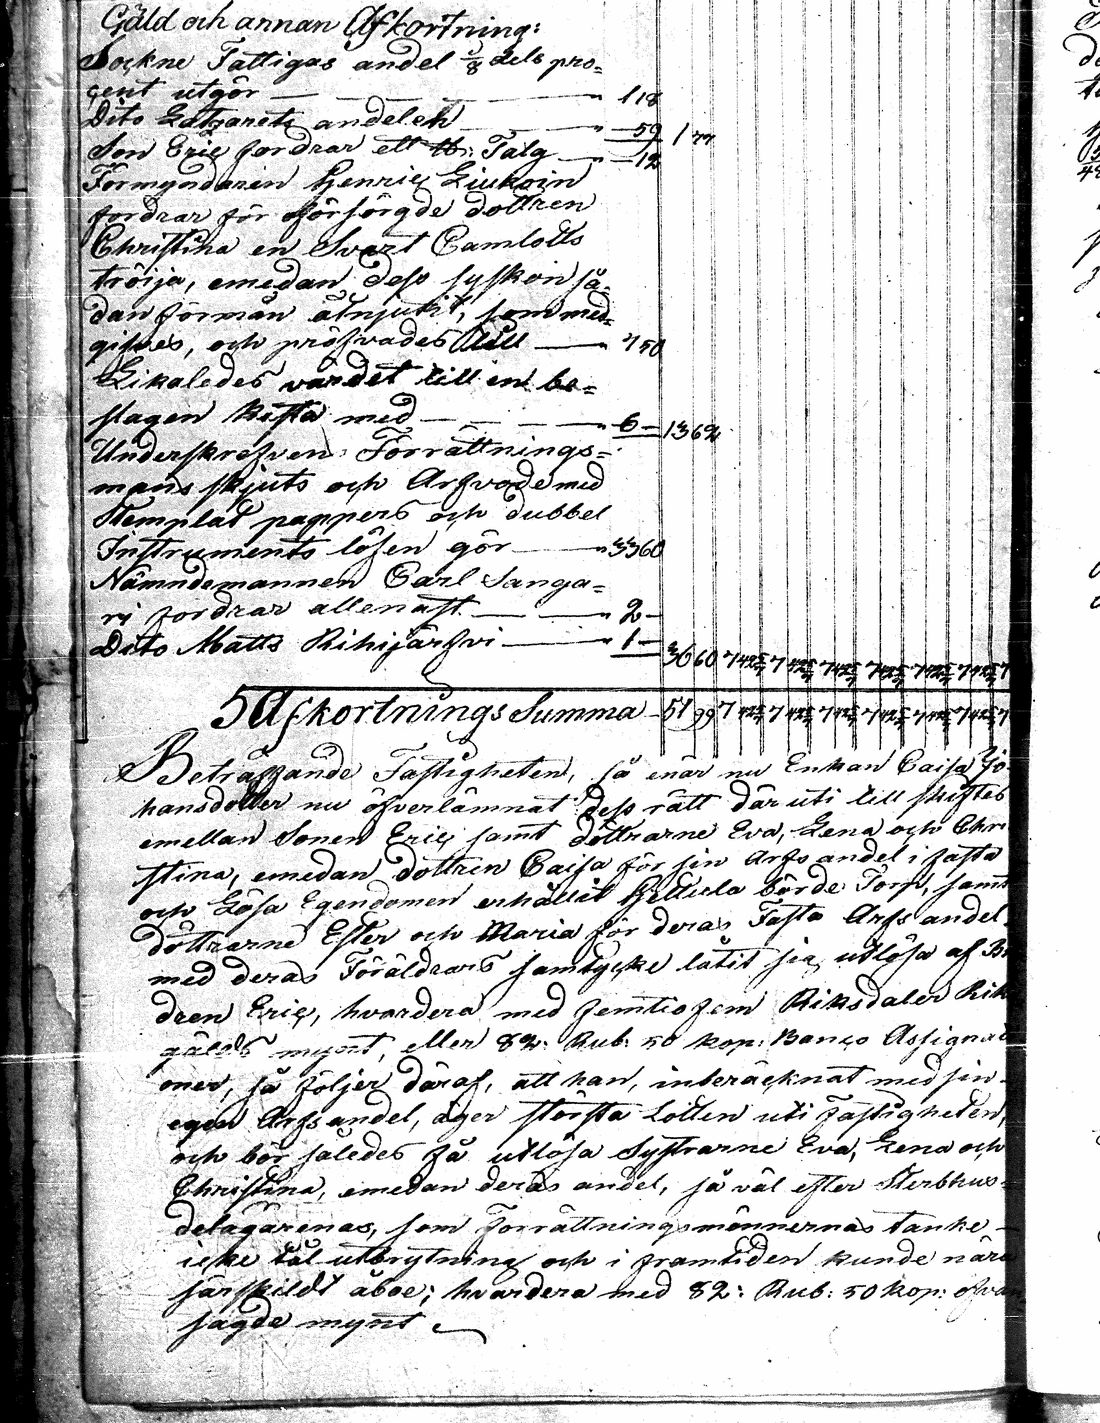 Gäld och annan Afkortning:
Sockne Fattigas andel 1/8 dels pro=
cent utgör — — — " 1 18
Dito andelen — " — 59 1 77
Son Eric fordrar ett ℔: Talg — " — 12
Förmyndaren Henric Liukoin
fordrar för oförsörgde dottren
Christina en Svart Camlotts
tröija, emedan dess syskon så=
dan förmån åtnjutit, som med=
gifves, och pröfvades till — " 7 50
Likaledes värdet till en be=
slagen kista med — — — " 6 — 13 62
Underskrefven Förrättnings=
mans skjuts och Arfvode med
Stemplat pappers och dubbel
Instruments lösen gör — " 33 60
Nämndemannen Carl Sanga=
ri fordrar allenast — — " 2 —
Dito Matts Rihijärfvi — " 1 — 36 60
Afkortnings Summa — 51 99
Beträffande Fastigheten, så enär nu Enkan Caisa Jo
hansdotter nu öfverlämnat dess rätt däruti till skiftes
emellan Sonen Eric samt döttrarne Eva, Lena och Chri
stina, emedan dottren Caisa för sin Arfs andel i fasta
och Lösa Egendomen erhållit Torp, samt
döttrarne Ester och Maria för deras Fasta Arfs andel
med deras Föräldrars samtycke låtit sig utlösa af Br
dren Eric, hvardera med femtiofem Riksdaler Rik
gälds mynt, eller 82: Rub: 50 kop: Banco Assignati
oner, så följer däraf, att han, inberäcknat med sin
egen Arfs andel, äger största Lotten uti fastigheten,
och bör således få utlösa Systrarne Eva, Lena och
Christina, emedan deras andel, så väl efter Sterbhus=
delägarenas, som Förrättningsmännernas tanke —
icke tål utbrytning och i framtiden kunde nära
särskildt åboe; hvardera med 82: Rub: 50 kop: ofvan
sagde mynt